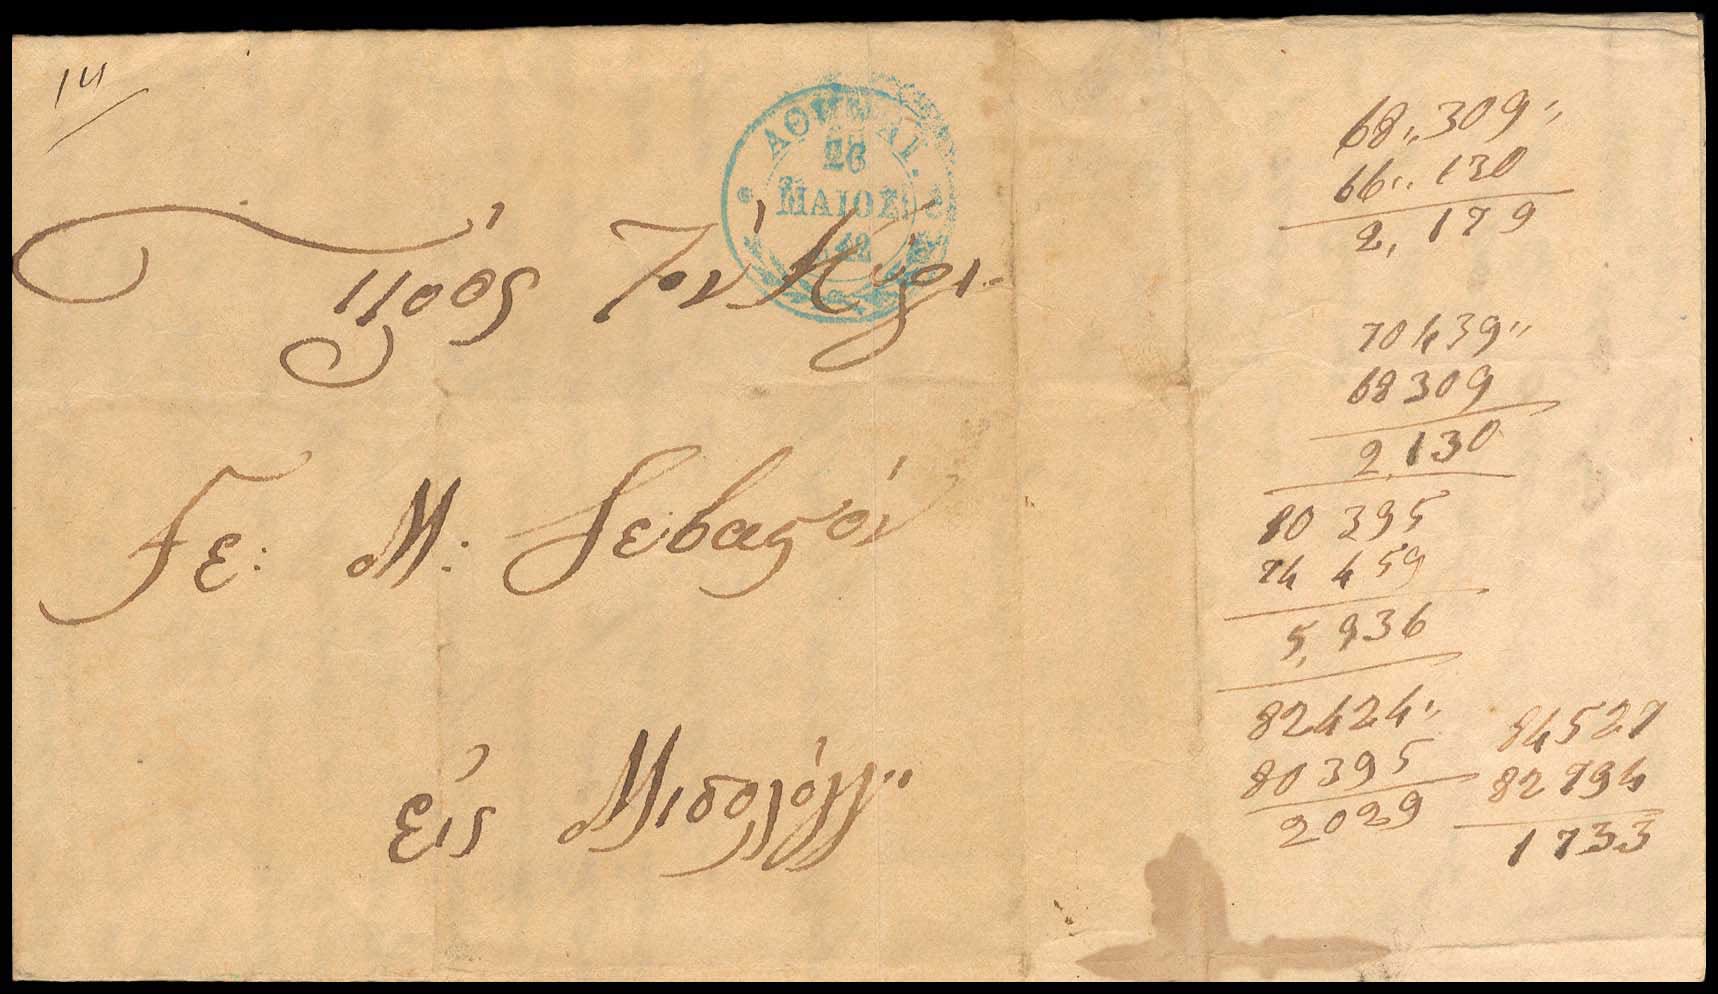 14
ΑΘΗΝΑΙ.
26
ΜΑΙΟΣ
42
Πρὸς Τὸν Κύρι-
Γε: Μ: Σεβαςόν
εἰς
68,,309,,
66,,130
2,179
70439,,
68309
2,130
80 395
74 459
5,936
82424,,
80395
2029
84527
82794
1733